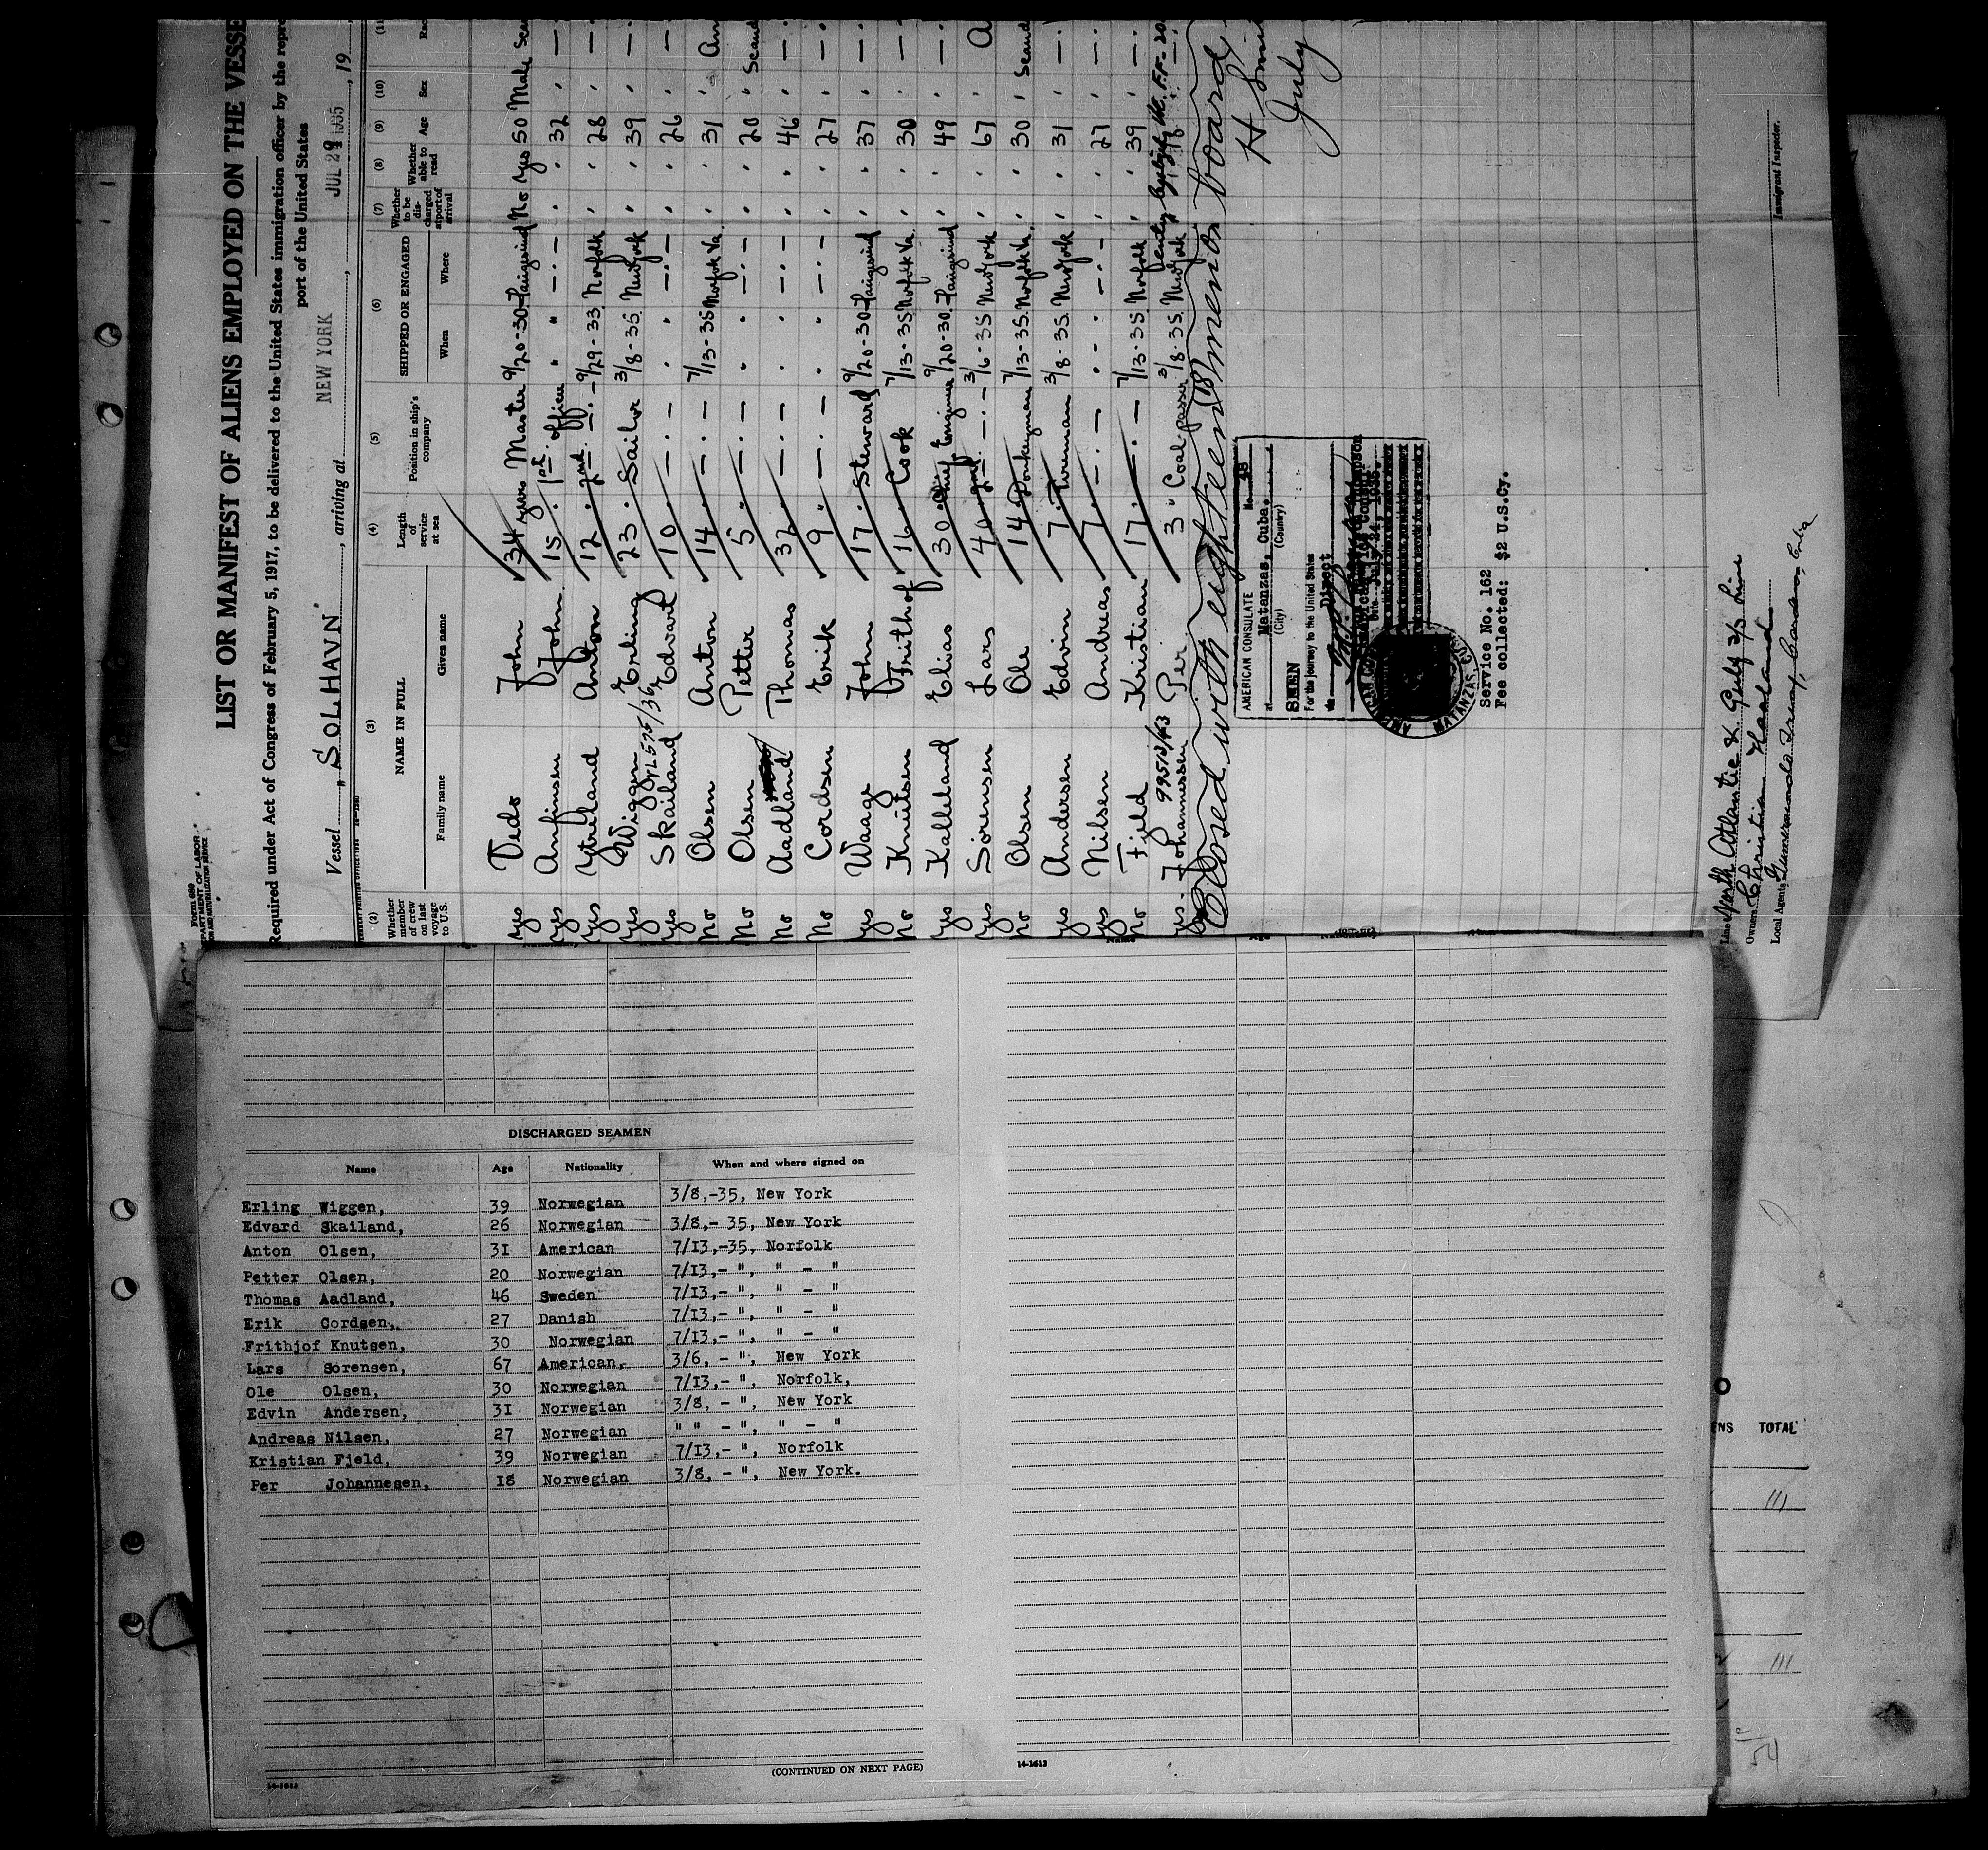 Form 680
LIST OR MANIFEST OF ALIENS EMPLOYED ON THE VESSE
Required under Act of Congress of February 5, 1917, to be delivered to the United States immigration officer by the repre
port of the United States
Vessel "SOLHAVN", arriving at NEW YORK, JUL 29 1935, 19
(2) (3) (4) (5) (6) (7) (8) (9) (10)
Whether member of crew on last voyage to U.S. NAME IN FULL Length of service at sea Position in ship's company SHIPPED OR ENGAGED Whether to be discharged at port of arrival Whether able to read Age Sex
Family name Given name When Where
yes Vedo John 34 years Master 9/20-30 Haugesund No yes 50 Male
yes Anfinsen John 15 " 1st officer " " - " - " " 32 "
yes Ytreland Anton 12 " 2nd - " - 9/29-33 Norfolk " " 28 "
yes Wiggen Erling 23 " Sailor 3/8-35 New York " " 39 "
yes Skailand Edvard 10 " - " - " - " - " " 26 "
No Olsen Anton 14 " - " - 7/13-35 Norfolk Va. " " 31 "
No Olsen Petter 5 " - " - " - " - " " 20 " Scand
No Aadland Thomas 32 " - " - " - " - " " 46 "
No Cordsen Erik 9 " - " - " - " - " " 27 "
yes Waage John 17 " Steward 9/20-30 Haugesund " " 37 "
No Knutsen Frithof 16 " Cook 7/13-35 Norfolk Va. " " 30 "
yes Kalleland Elias 30 " Chief Engineer 9/20-30 Haugesund " " 49 "
yes Sorensen Lars 40 " 2nd - " - 3/6-35 New York " " 67 " A
No Olsen Ole 14 " Donkeyman 7/13-35 Norfolk Va. " " 30 " Scand
yes Andersen Edvin 7 " Fireman 3/8-35 New York " " 31 "
yes Nilsen Andreas 7 " - " - " - " - " " 27 "
No Fjeld Kristian 17 " - " - 7/13-35 Norfolk " " 39 "
99513/43
yes Johannessen Per 3 " Coal passer 3/8-35 New York
Closed with eighteen (18) men on board
H Smi
July
AMERICAN CONSULATE No. 38
at Matanzas, Cuba.
(City) (Country)
SEEN
For the journey to the United States
via Direct
Date July 24, 1935.
MATANZAS, CU
Service No. 162
Fee collected: $2 U.S.Cy.
Line North Atlantic & Gulf S/S Line
Owners Christian Haaland
Local Agents
Immigrant Inspector.
DISCHARGED SEAMEN
Name Age Nationality When and where signed on
Erling Wiggen, 39 Norwegian 3/8,-35, New York
Edvard Skailand, 26 Norwegian 3/8,- 35, New York
Anton Olsen, 31 American 7/13,-35, Norfolk
Petter Olsen, 20 Norwegian 7/13,- ", " - "
Thomas Aadland, 46 Sweden 7/13,- ", " - "
Erik Cordsen, 27 Danish 7/13,- ", " - "
Frithjof Knutsen, 30 Norwegian 7/13,- ", " - "
Lars Sorensen, 67 American, 3/6, - ", New York
Ole Olsen, 30 Norwegian 7/13,- ", Norfolk,
Edvin Andersen, 31 Norwegian 3/8, - ", New York
Andreas Nilsen, 27 Norwegian " " - ", " - "
Kristian Fjeld, 39 Norwegian 7/13,- ", Norfolk
Per Johannesen, 18 Norwegian 3/8, - ", New York.
(CONTINUED ON NEXT PAGE)
14-1613
14-1613
ENS TOTAL
111
111
54